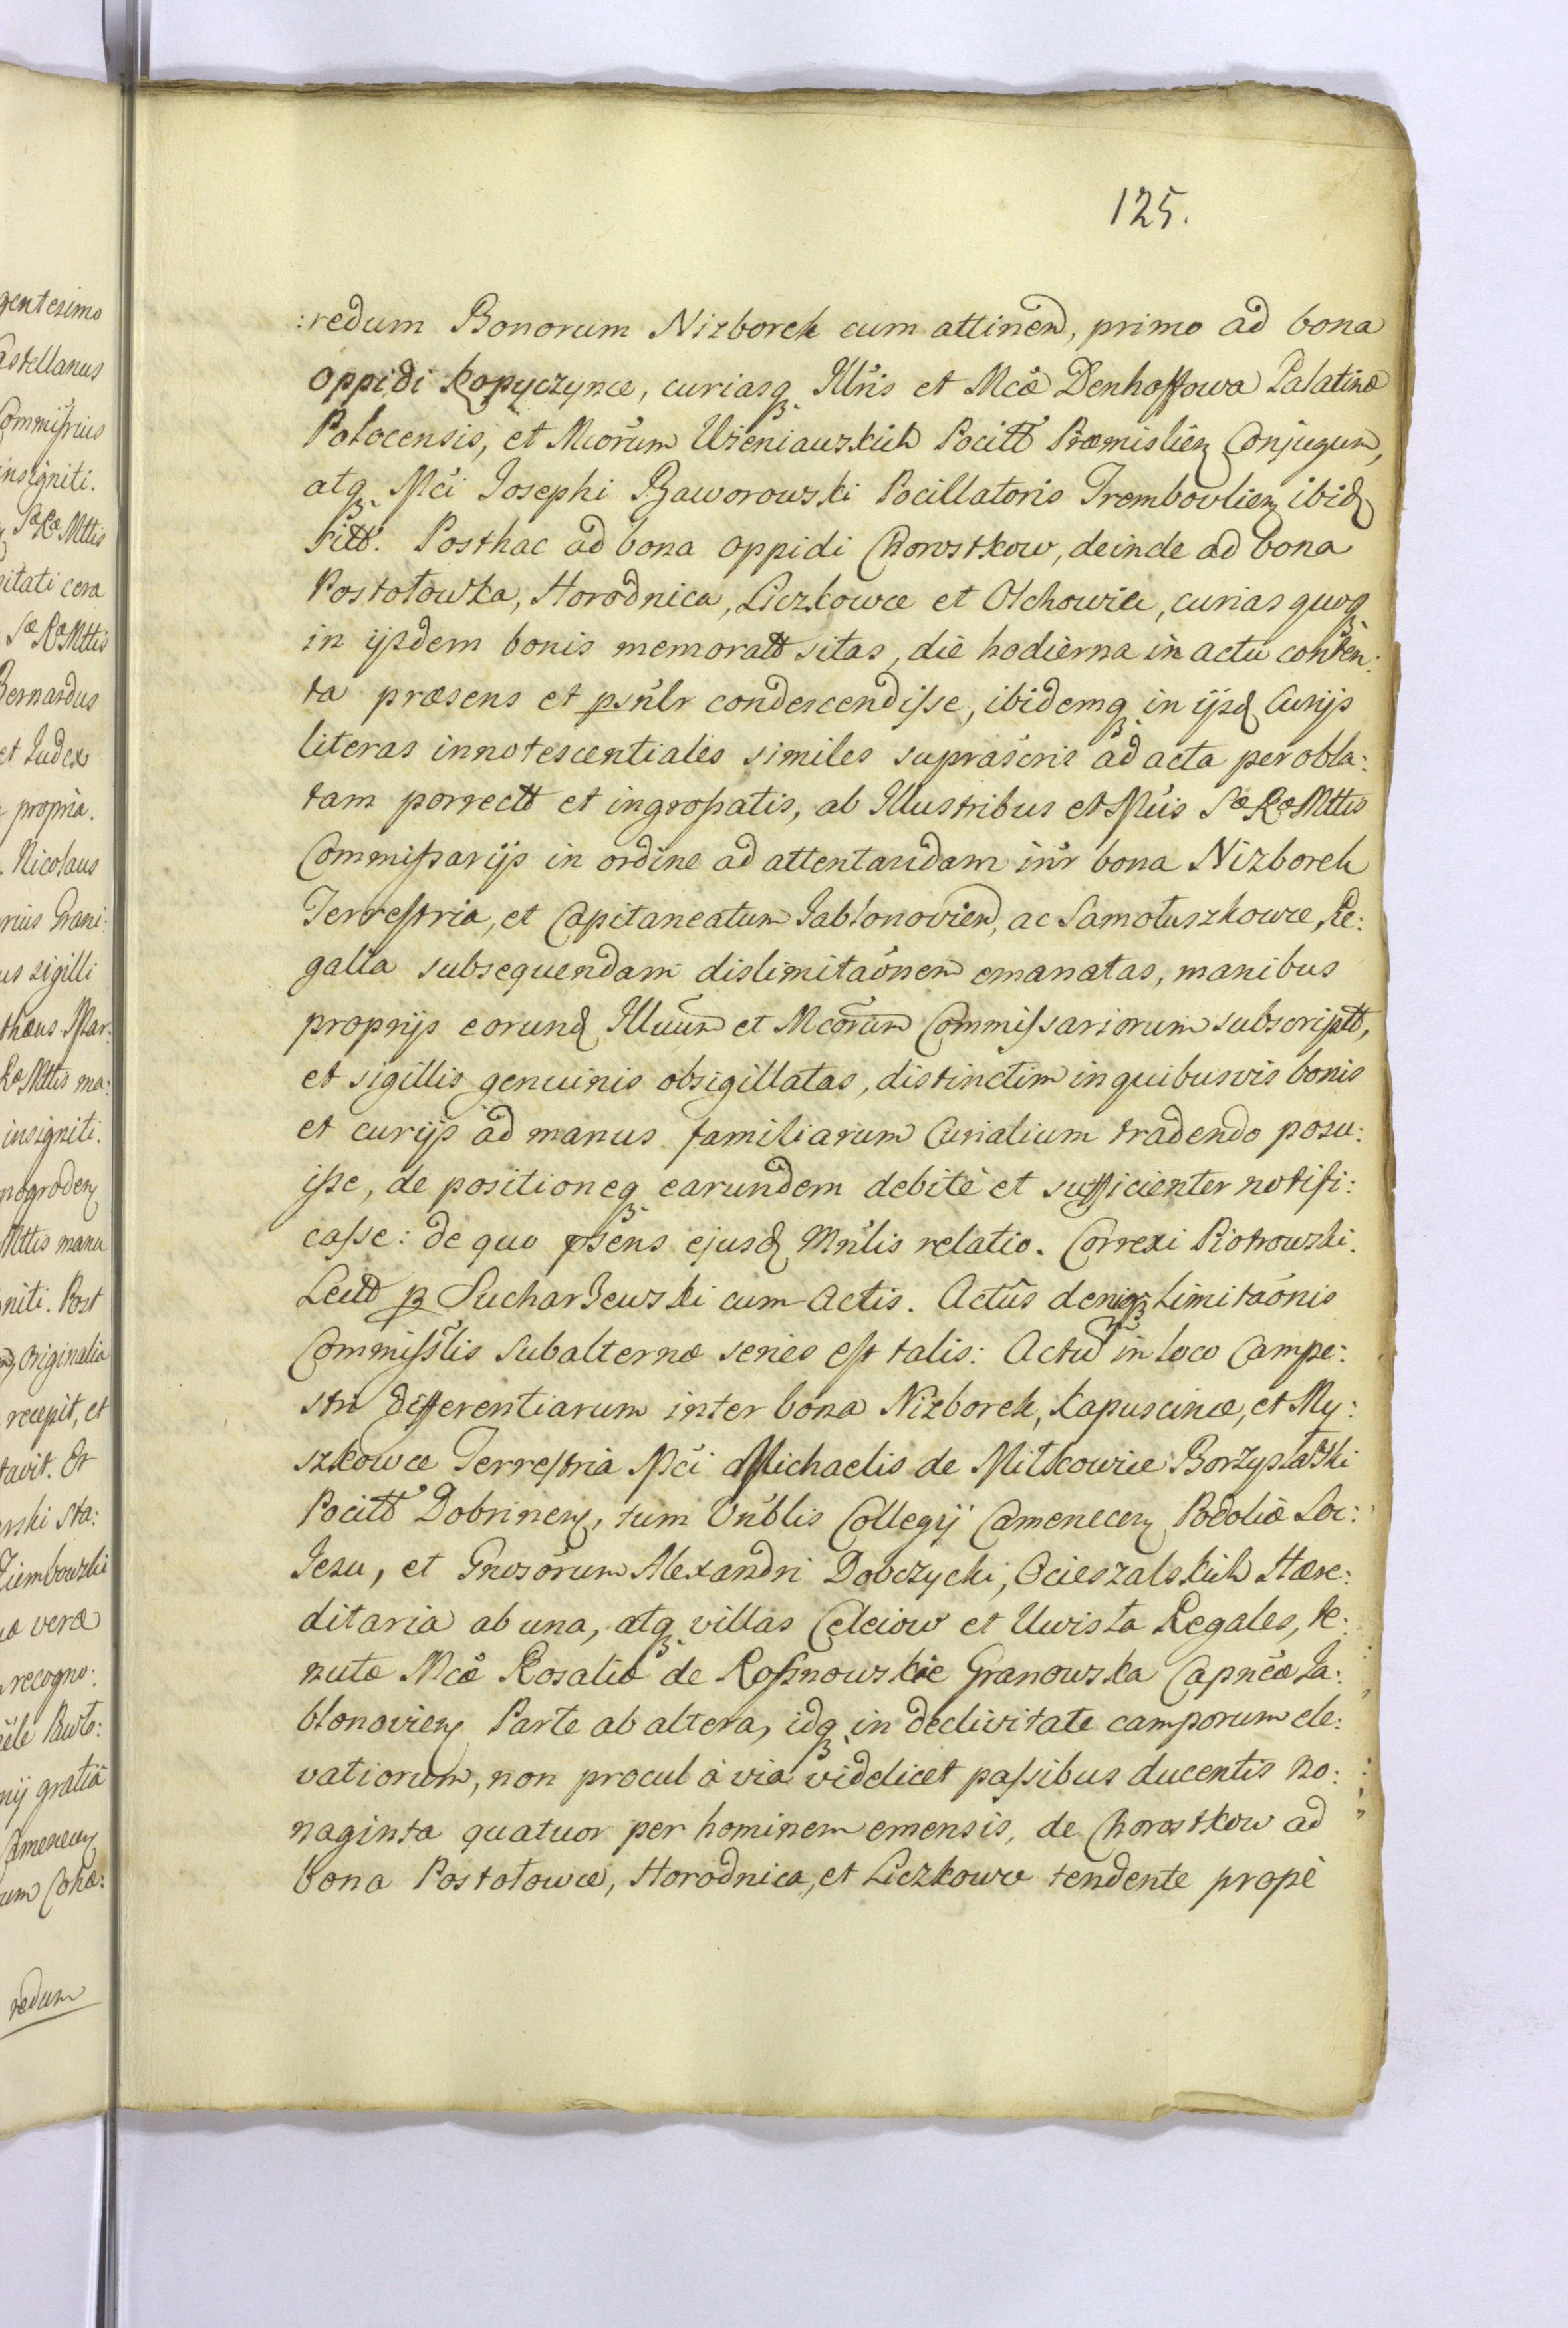 125.
:redum Bonorum Nizborek cum attinen, primo ad bona
Oppidi Kopyczynce, curiasq₃ Illris et Mcæ Denhoffowa Palatinæ
Polocensis, et Mcorum Uzeniauskich Pocitt Præmislien Conjugum,
atq₃ Mci Josephi Baworowski Pocillatoris Trembovlien ibid
sitt. Posthac ad bona oppidi Chorostkow, deinde ad bona
Postołowka, Horodnica, Liczkowce et Olchowice, curias quoq₃
in ijsdem bonis memoratt sitas, die hodierna in actu conten:
ta præsens et psnlr condescendisse, ibidemq₃ in ijsd Curijs
literas innotescentiales similes suprascris ad acta per obla:
tam porrectt et ingrossatis, ab Illustribus et Mcis Sæ Ræ Mttis
Commissarijs in ordine ad attentandam intr bona Nizborek
Terrestria, et Capitaneatum Jablonovien, ac Samołuszkowce, Re:
galia subsequendam dislimitaonem emanatas, manibus
proprijs eorund Illrium et Mcorum Commissariorum subscriptt,
et sigillis genuinis obsigillatas, distinctim in quibusvis bonis
et curijs ad manus familiarum Curialium tradendo posu:
isse, de positioneq₃ earundem debitè et sufficienter notifi:
casse: de quo psens ejusd Mnlis relatio. Correxi Piotrowski.
Lectt p Sucharzewski cum Actis. Actus deniq₃ Limitaonis
Commisslis subalternæ series est talis: Actum in loco Campe:
stri differentiarum inter bona Nizborek, Kapuscince, et My:
szkowce Terrestria Mci Michaelis de Mitkowice Borzysławski
Pocitt Dobrinen, tum Vnblis Collegij Camenecen Podoliæ Soc:
Jesu, et Gnosorum Alexandri Dobczycki, Ocieszalskich Hære:
ditaria ab una, atq₃ villas Celeiow et Uwisła Regales, te:
nutæ Mcæ Rosaliæ de Rossnowskie Granowska Capneæ Ja:
blonovien Parte ab altera, idq₃ in declivitate camporum ele:
vatiorum, non procul à via videlicet passibus ducentis no:
naginta quatuor per hominem emensis, de Chorostkow ad
bona Postołowce, Horodnica, et Liczkowce tendente propè
gentesimo
astellanus
Commissrius
insigniti.
Sæ Ræ Mttis
sitati cera
Sæ Ræ Mttis
Bernardus
et Judex
propria.
Nicolaus
rius Grani:
us sigilli
thæus Star:
Ræ Mttis ma:
insigniti.
nogroden
Mttis manu
niti. Post
Originalia
recepit, et
tavit. Et
rski sta:
Ziembowski
veræ
recogno:
nij gratiâ
Camenecen
um Cohæ:
redum